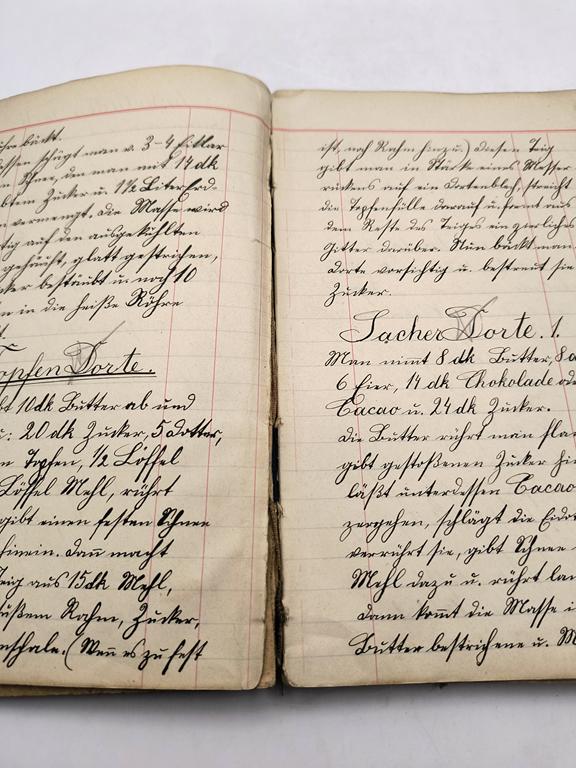 bäckt.
schlägt man v. 3-4 Eiklar
Schnee, den man mit 14 dk
Zucker u. 1½ Liter Erd-
vermengt. Die Masse wird
auf den ausgekühlten
gehäuft, glatt gestrichen,
bestäubt u. noch 10
in die heiße Röhre
Topfen Dorte.
10 dk Butter ab und
20 dk Zucker, 5 Dotter,
Topfen, ½ Löffel
Löffel Mehl, rührt
gibt einen festen Schnee
hinein. Dañ macht
Teig aus 15 dk Mehl,
süßem Rahm, Zucker,
(Weñ es zu fest
ist, noch Rahm hinzu.) Diesen Teig
gibt man in Stärke eines Messer
rückens auf ein Dortenblech, streicht
die Topfenfülle darauf u. formt aus
dem Reste des Teiges ein zierliches
Gitter darüber. Nun bäckt man
Dorte vorsichtig u. bestreut sie
Zucker.
Sacher Dorte. 1.
Man nimt 8 dk Butter, 8 d
6 Eier, 14 dk Chokolade od
Cacao u. 24 dk Zucker.
Die Butter rührt man flau
gibt gestoßenen Zucker hin
läßt unterdessen Cacao
zergehen, schlägt die Eido
verrührt sie, gibt Schnee
Mehl dazu u. rührt lan
dann kom̄t die Masse i
Butter bestrichene u. M